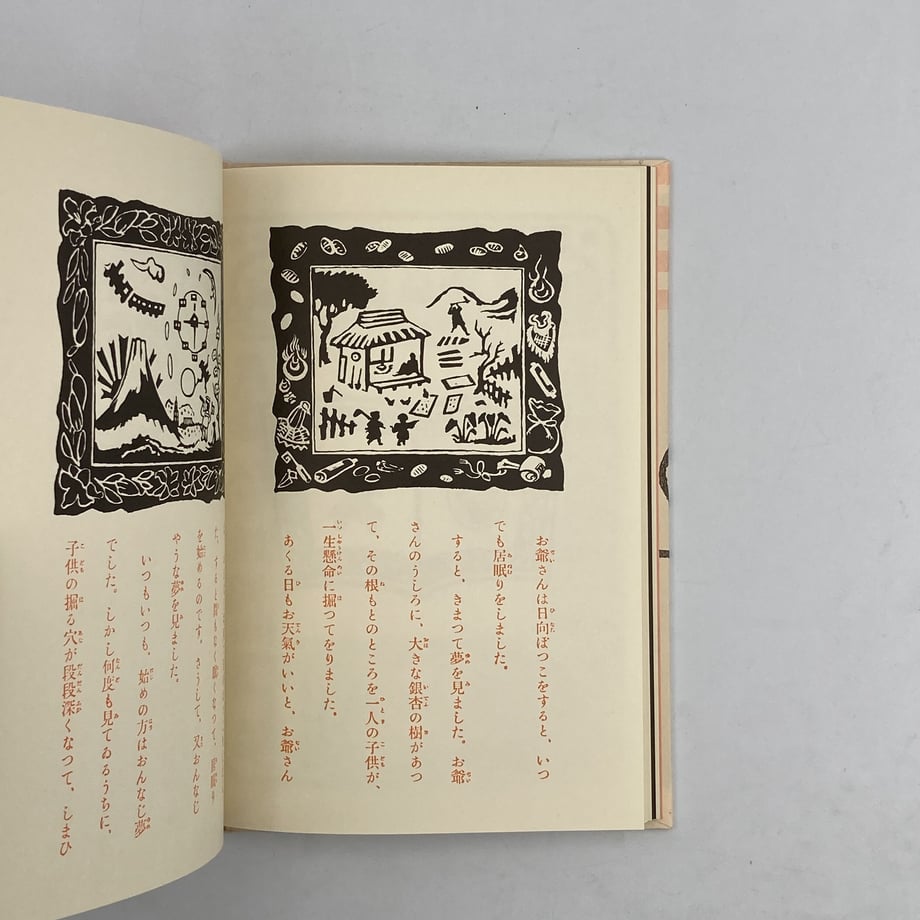 お爺さんは日向ぼつこをすると、いつ
でも居眠りをしました。
すると、きまつて夢を見ました。お爺
さんのうしろに、大きな銀杏の樹があつ
て、その根もとのところを一人の子供が、
一生懸命に掘つてをりました。
あくる日もお天氣がいいと、お爺さん
すると間もなく眠くなつて、居眠り
を始めるのです。さうして、又おんなじ
やうな夢を見ました。
いつもいつも、始めの方はおんなじ夢
でした。しかし何度も見てゐるうちに、
子供の掘る穴が段段深くなつて、しまひ